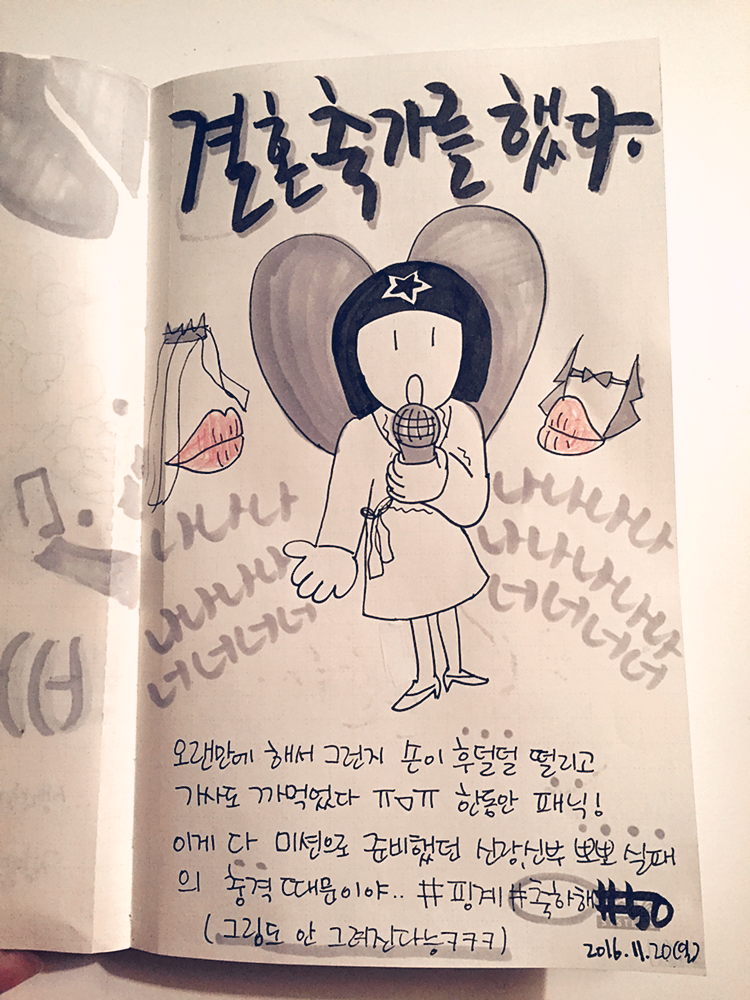 결혼축가를 했다.
나나나 나나나나
나나나나 나나나나나
너너너너 너너너너
오랜만에 해서 그런지 손이 후덜덜 떨리고
가사도 까먹었다 ㅠㅁㅠ 한동안 패닉!
이게 다 미션으로 준비했던 신랑,신부 뽀뽀 실패
의 충격 때문이야.. #핑계 #축하해 #50
(그림도 안 그려진다능ㅋㅋㅋ)
2016.11.20(일)